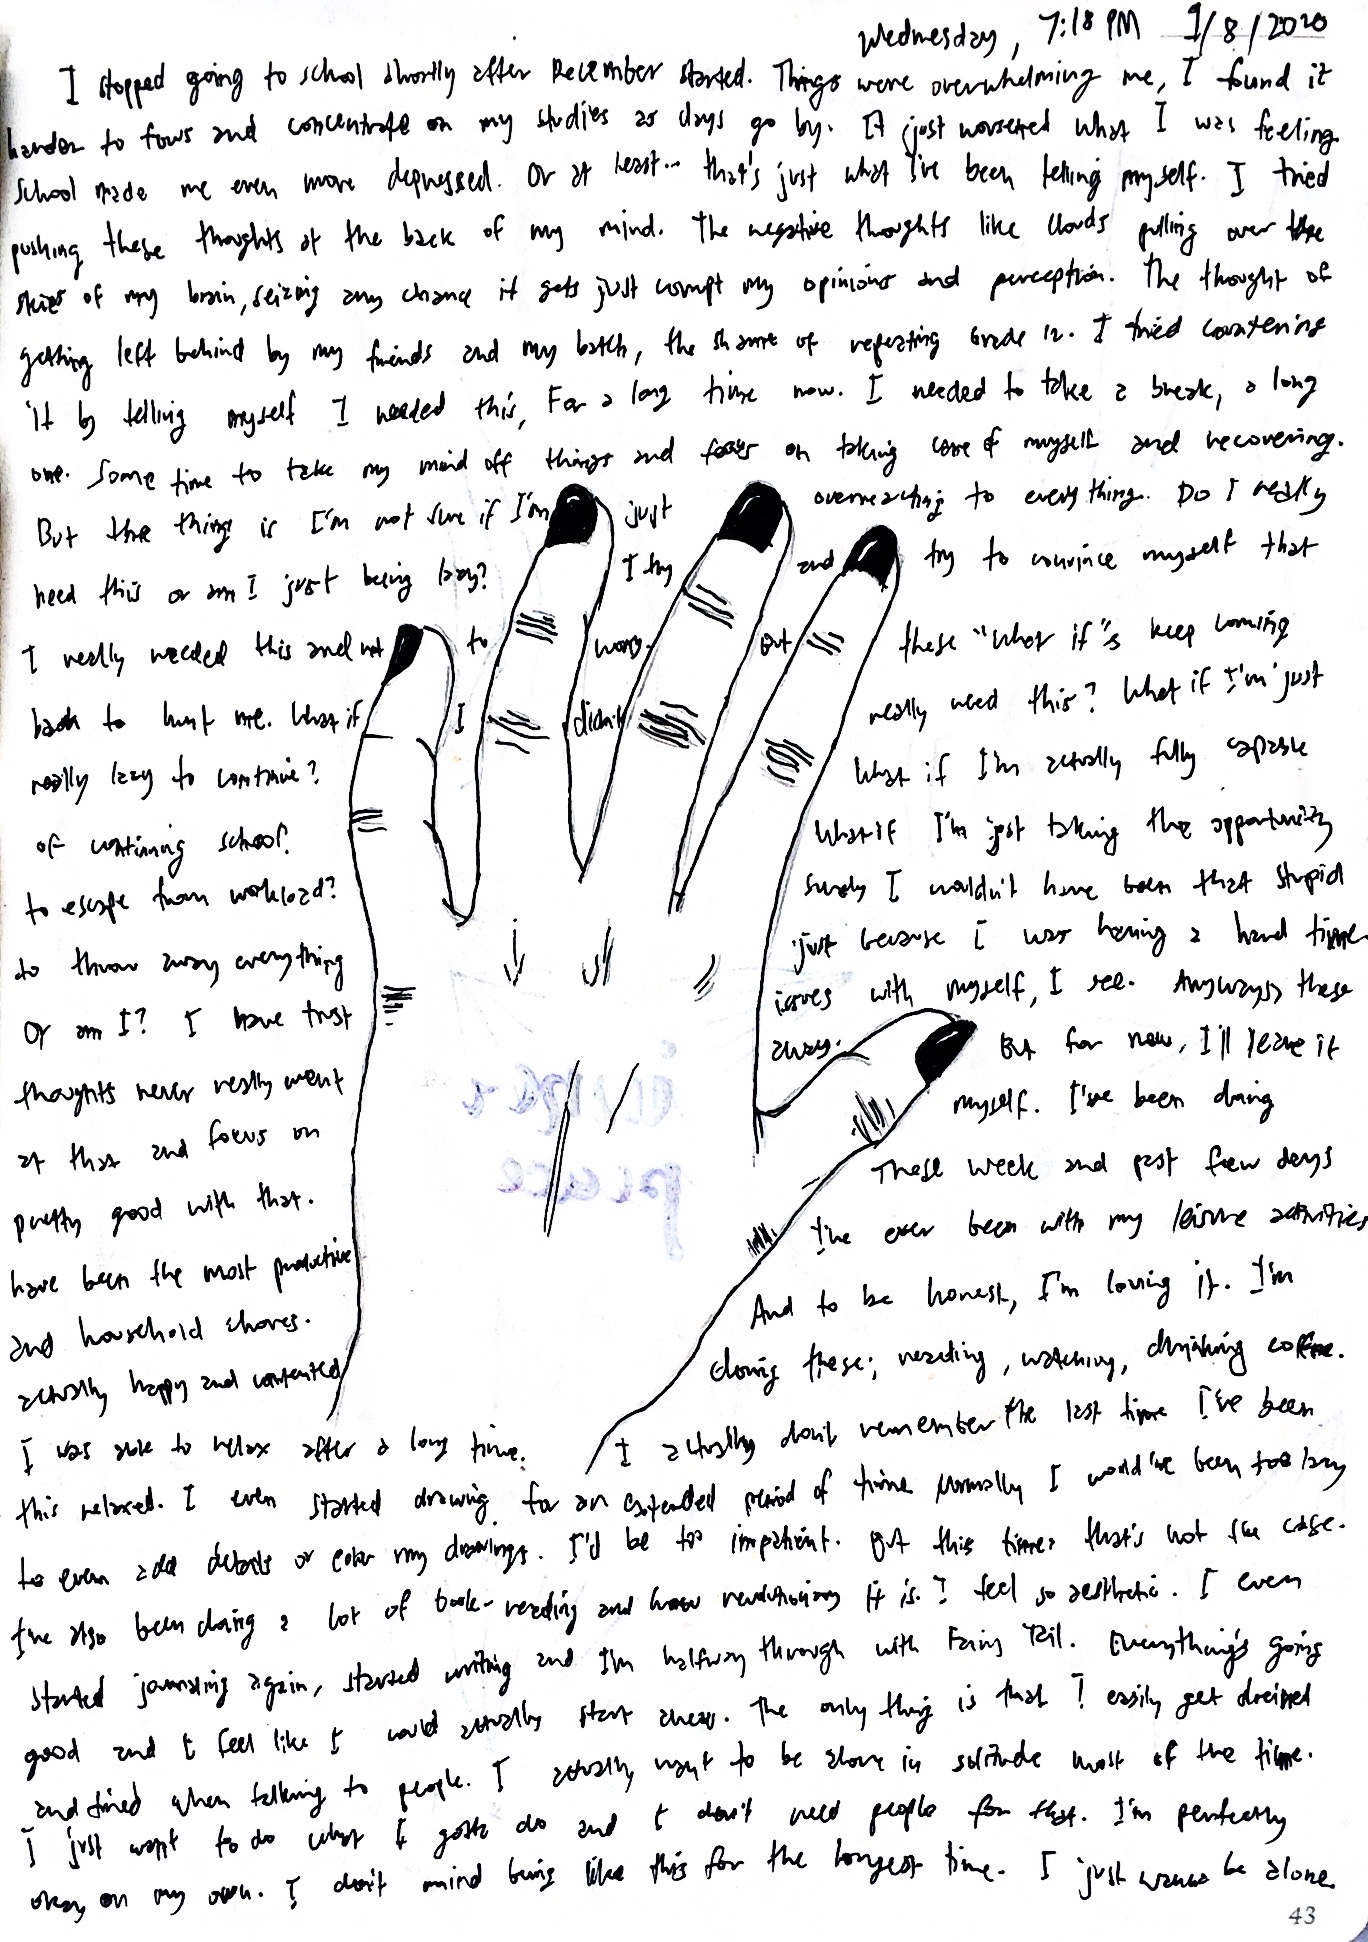 Wednesday, 7:18 PM 1/8/2020
I stopped going to school shortly after December started. Things were overwhelming me, I found it
harder to focus and concentrate on my studies as days go by. It just worsened what I was feeling
School made me even more depressed. Or at least.. that's just what I've been telling myself. I tried
pushing these thoughts at the back of my mind. The negative thoughts like clouds pulling over the
skies of my brain, seizing any chance it gets just corrupt my opinions and perception. The thought of
getting left behind by my friends and my batch, the shame of repeating Grade 12. I tried countering
it by telling myself I needed this, For a long time now. I needed to take a break, a long
one. Some time to take my mind off things and focus on taking care of myself and recovering.
But the thing is I'm not sure if I'm just overreacting to everything. Do I really
need this or am I just being lazy? I try and try to convince myself that
I really needed this and not to worry. But these "what if"s keep coming
back to hunt me. What if I didn't really need this? What if I'm just
really lazy to continue? What if I'm actually fully capable
of continuing school? What if I'm just taking the opportunity
to escape from workload? Surely I wouldn't have been that stupid
to throw away everything just because I was having a hard time
Or am I? I have trust issues with myself, I see. Anyways, these
thoughts never really went away. But for now, I'll leave it
at that and focus on myself. I've been doing
pretty good with that. These week and past few days
have been the most productive I've ever been with my leisure activities
and household chores. And to be honest, I'm loving it. I'm
actually happy and contented doing these; reading, watching, drinking coffee.
I was able to relax after a long time. I actually don't remember the last time I've been
this relaxed. I even started drawing for an extended period of time. Normally I would've been too lazy
to even add details or color my drawings. I'd be too impatient. But this time, that's not the case.
I've also been doing a lot of book-reading and how revolutionary it is. I feel so aesthetic. I even
started journaling again, started writing and I'm halfway through with Fairy Tail. Everything's going
good and I feel like I could actually start anew. The only thing is that I easily get drained
and tired when talking to people. I actually want to be alone in solitude most of the time.
I just want to do what I gotta do and I don't need people for that. I'm perfectly
okay on my own. I don't mind being like this for the longest time. I just wanna be alone.
43